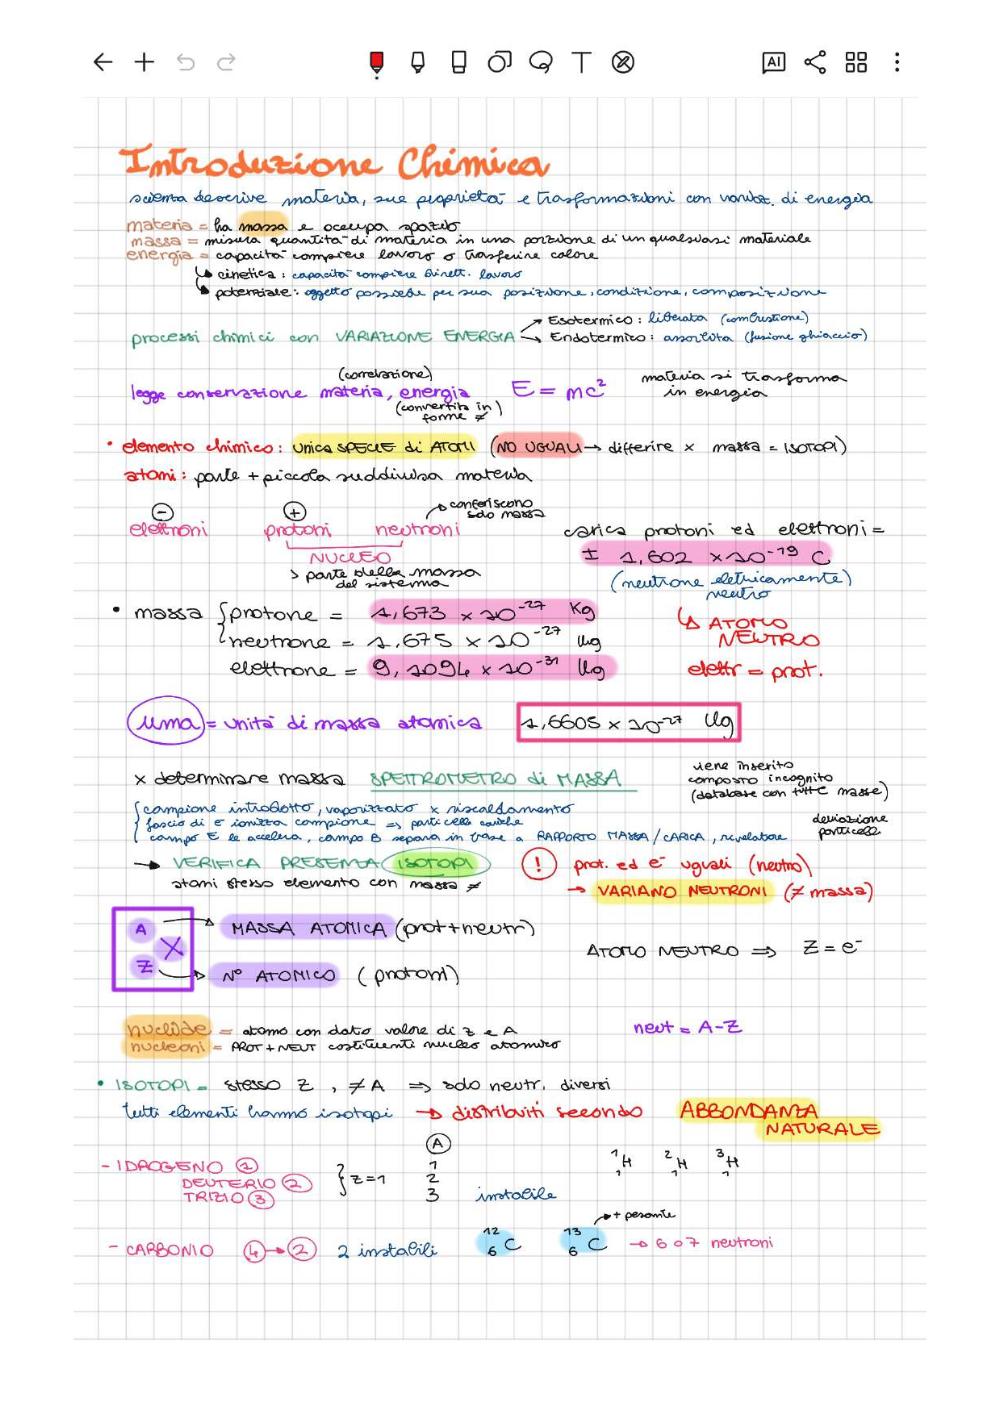 AI
Introduzione Chimica
scienza descrive materia, sue proprietà e trasformazioni con variaz. di energia
materia = ha massa e occupa spazio
massa = misura quantità di materia in una porzione di un qualsiasi materiale
energia = capacità compiere lavoro o trasferire calore
cinetica: capacità compiere dirett. lavoro
potenziale: oggetto possiede per sua posizione, condizione, composizione
processi chimici con VARIAZIONE ENERGIA
Esotermico: liberata (combustione)
Endotermico: assorbita (fusione ghiaccio)
(correlazione)
legge conservazione materia, energia E = mc²
(convertita in forme ≠)
materia si trasforma
in energia
• elemento chimico: unica SPECIE di ATOMI (NO UGUALI → differire x massa = ISOTOPI)
atomi: parte + piccola suddivisa materia
⊖ ⊕ conferiscono
solo massa
elettroni protoni neutroni
NUCLEO
> parte della massa
del sistema
carica protoni ed elettroni =
± 1,602 × 10⁻¹⁹ C
(neutrone elettricamente)
neutro
• massa { protone = 1,673 × 10⁻²⁷ Kg
neutrone = 1,675 × 10⁻²⁷ Kg
elettrone = 9,1094 × 10⁻³¹ Kg
↳ ATOMO
NEUTRO
elettr = prot.
uma = unità di massa atomica 1,6605 × 10⁻²⁷ Kg
x determinare massa SPETTROMETRO di MASSA
viene inserito
composto incognito
(database con tutte masse)
{ campione introdotto, vaporizzato x riscaldamento
fascio di e⁻ ionizza campione => particelle cariche
campo E le accelera, campo B separa in base a RAPPORTO MASSA/CARICA, rivelatore
deviazione
particelle
→ VERIFICA PRESENZA ISOTOPI
atomi stesso elemento con massa ≠
! prot. ed e⁻ uguali (neutro)
→ VARIANO NEUTRONI (≠ massa)
A → MASSA ATOMICA (prot+neutr)
X
Z → N° ATOMICO (protoni)
ATOMO NEUTRO => Z = e⁻
nuclide = atomo con dato valore di Z e A
nucleoni = PROT + NEUT costituenti nucleo atomico
neut = A-Z
• ISOTOPI = stesso Z, ≠ A => solo neutr. diversi
tutti elementi hanno isotopi → distribuiti secondo ABBONDANZA
NATURALE
A
- IDROGENO 1
DEUTERIO 2
TRIZIO 3
} Z=1
1
2
3 instabile
¹₁H ²₁H ³₁H
+ pesante
- CARBONIO 4 → 2 2 instabili ¹²₆C ¹³₆C → 6 o 7 neutroni